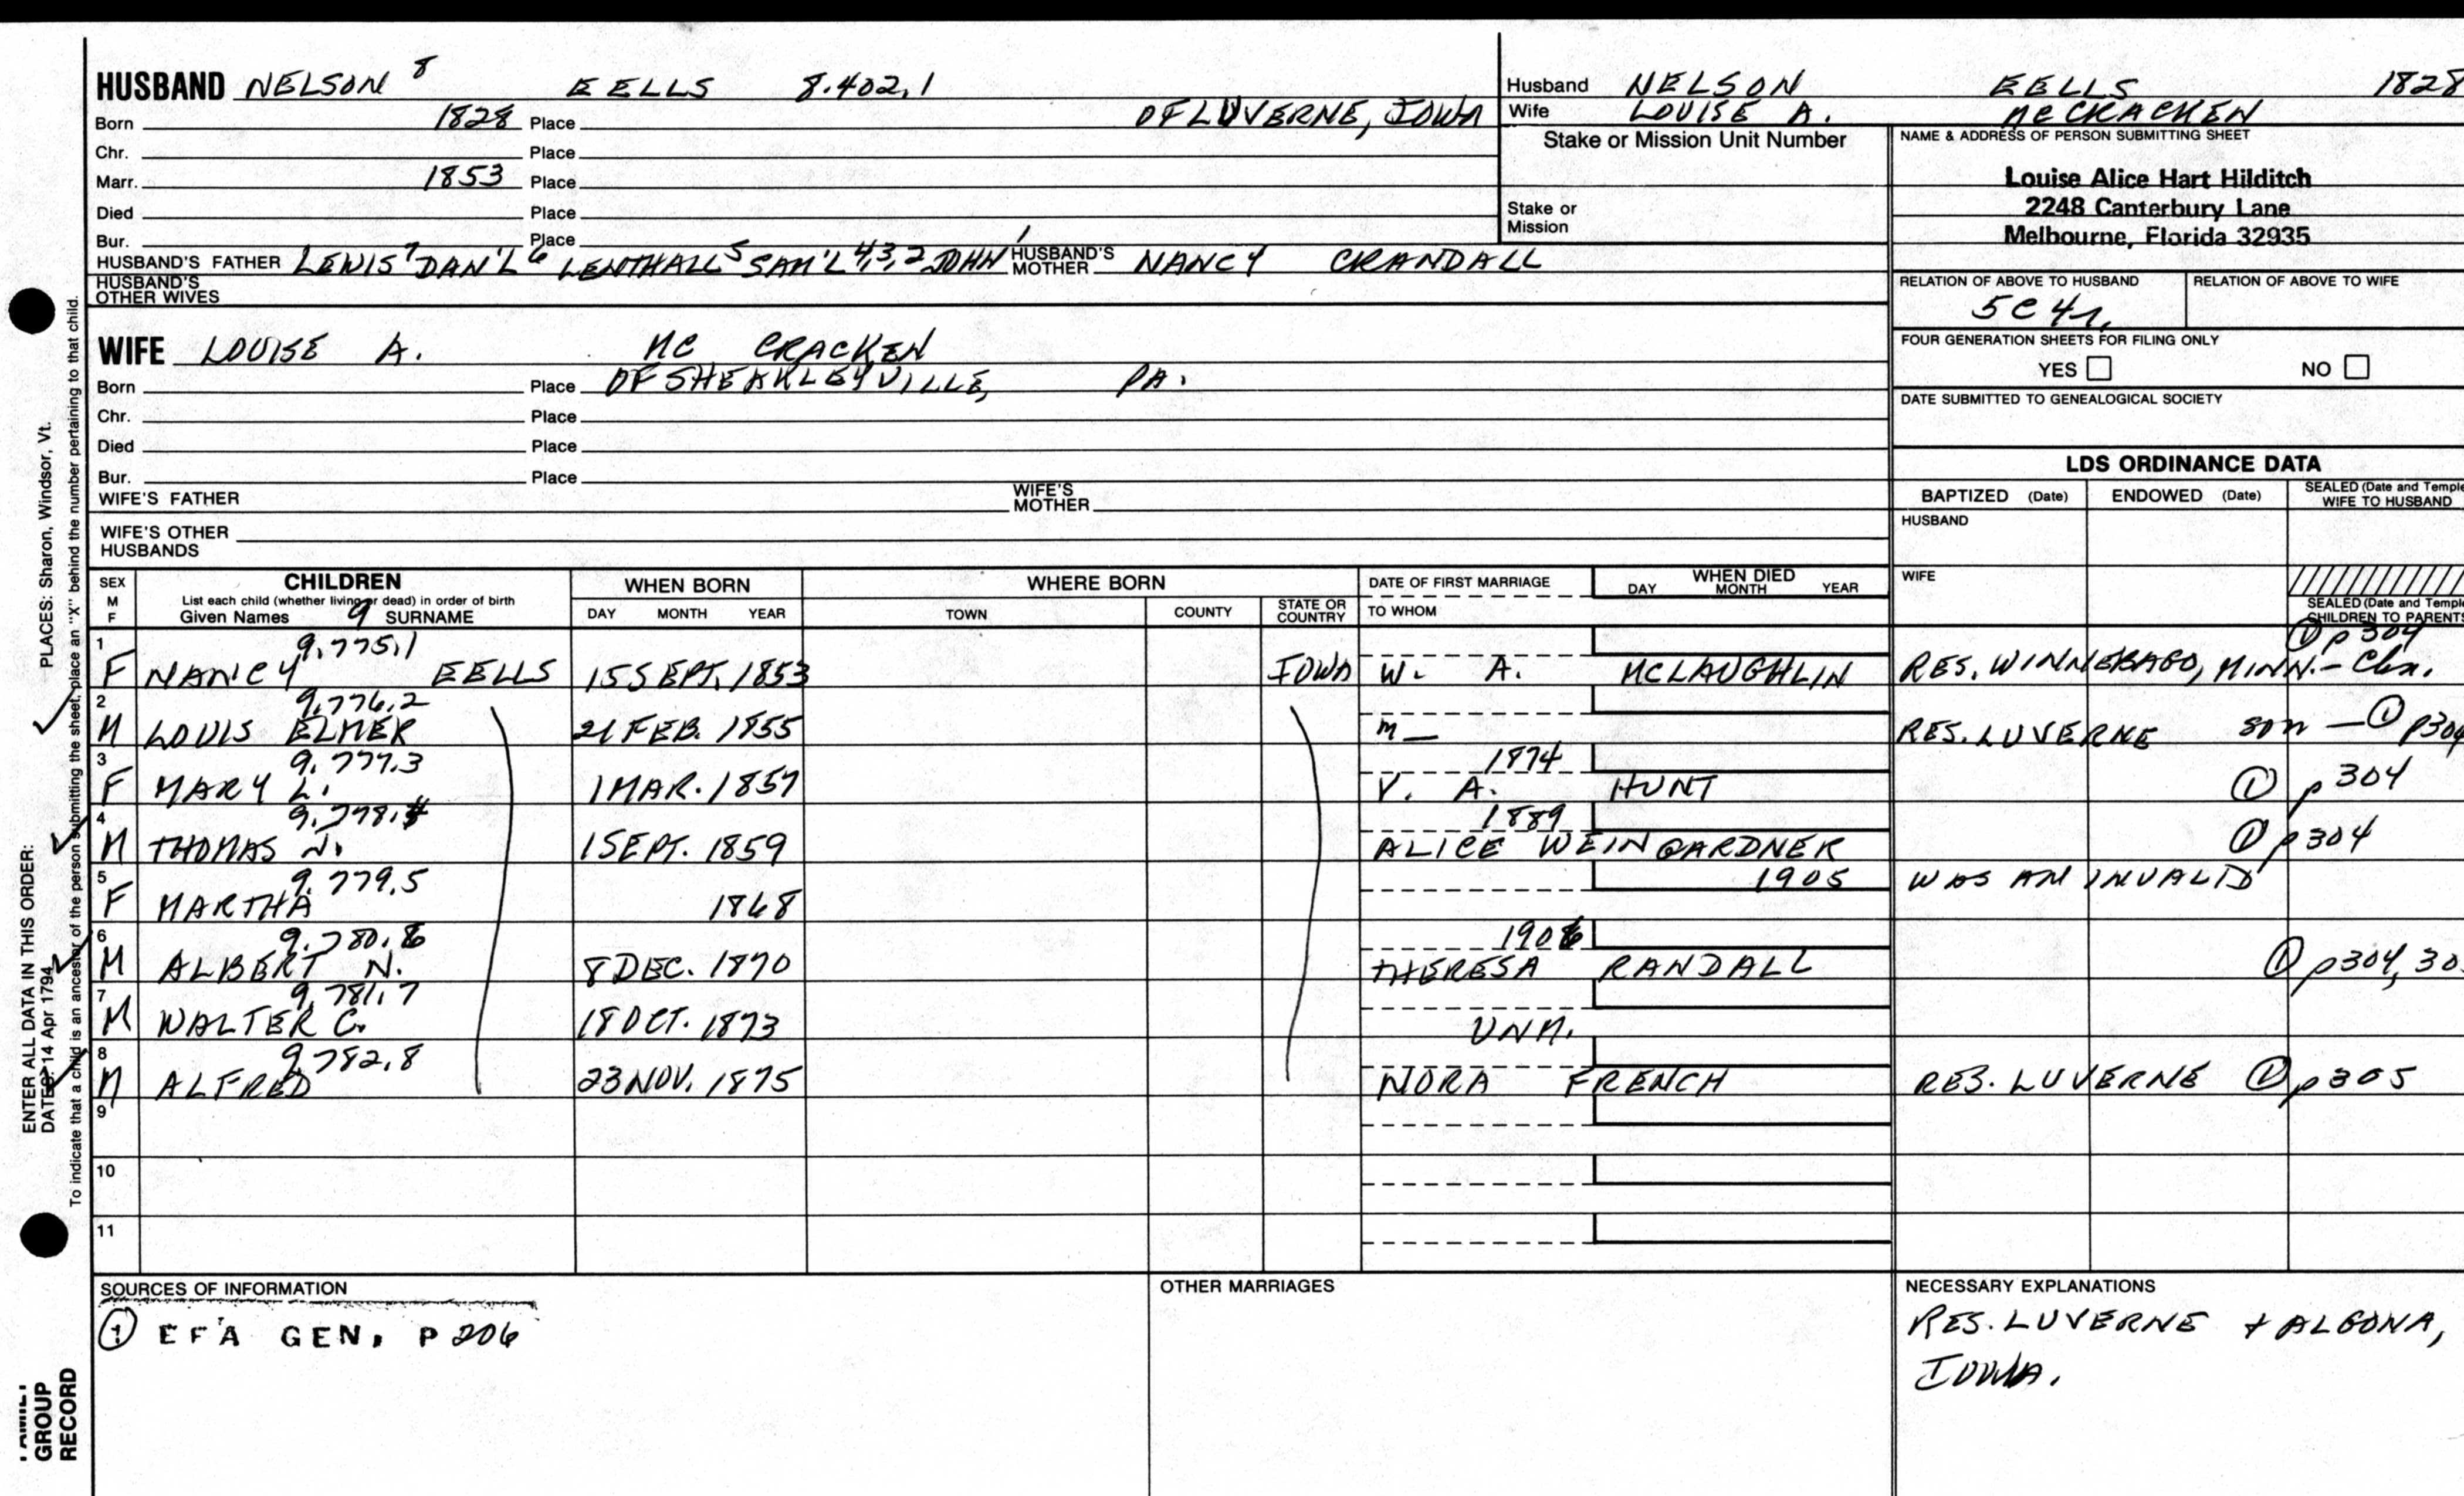 HUSBAND NELSON 8 EELLS 8.402,1
Born 1828 Place OF LUVERNE, IOWA
Chr. Place
Marr. 1853 Place
Died Place
Bur. Place
HUSBAND'S FATHER LEWIS7 DAN'L6 LENTHALL5 SAM'L4,3,2 JOHN1 HUSBAND'S MOTHER NANCY CRANDALL
HUSBAND'S OTHER WIVES
Husband NELSON EELLS 1828
Wife LOUISE A. MC CRACKEN
Stake or Mission Unit Number
Stake or Mission
NAME & ADDRESS OF PERSON SUBMITTING SHEET
Louise Alice Hart Hilditch
2248 Canterbury Lane
Melbourne, Florida 32935
RELATION OF ABOVE TO HUSBAND RELATION OF ABOVE TO WIFE
5C4r,
FOUR GENERATION SHEETS FOR FILING ONLY
YES NO
DATE SUBMITTED TO GENEALOGICAL SOCIETY
WIFE LOUISE A. MC CRACKEN
Born Place OF SHEAKLEYVILLE, PA.
Chr. Place
Died Place
Bur. Place
WIFE'S FATHER WIFE'S MOTHER
WIFE'S OTHER HUSBANDS
LDS ORDINANCE DATA
BAPTIZED (Date) ENDOWED (Date) SEALED (Date and Temple WIFE TO HUSBAND
HUSBAND
WIFE
SEALED (Date and Temple CHILDREN TO PARENTS
SEX M F
CHILDREN
List each child (whether living or dead) in order of birth
Given Names 9 SURNAME
WHEN BORN
DAY MONTH YEAR
WHERE BORN
TOWN COUNTY STATE OR COUNTRY
DATE OF FIRST MARRIAGE
TO WHOM
WHEN DIED
DAY MONTH YEAR
1 9,775,1 ① p304
F NANCY EELLS 15 SEPT. 1853 IOWA W. A. MCLAUGHLIN RES. WINNEBAGO, MINN.- Chn.
2 9,776,2
M LOUIS ELMER 21 FEB. 1855 m— RES. LUVERNE son — ① p304
3 9,777.3 1874
F MARY L. 1 MAR. 1857 V. A. HUNT ① p304
4 9,778,4 1889
M THOMAS N. 1 SEPT. 1859 ALICE WEINGARDNER ① p304
5 9,779.5 1905 WAS AN INVALID
F MARTHA 1868
6 9.780.6 1906
M ALBERT N. 8 DEC. 1870 THERESA RANDALL ① p304, 30
7 9,781,7
M WALTER C. 18 OCT. 1873 UNM.
8 9,782,8
M ALFRED 23 NOV. 1875 NORA FRENCH RES. LUVERNE ① p305
9
10
11
SOURCES OF INFORMATION
① EFA GEN, P 206
OTHER MARRIAGES
NECESSARY EXPLANATIONS
RES. LUVERNE + ALGONA,
IOWA.
PLACES: Sharon, Windsor, Vt.
ENTER ALL DATA IN THIS ORDER:
DATES: 14 Apr 1794
To indicate that a child is an ancestor of the person submitting the sheet, place an "X" behind the number pertaining to that child.
FAMILY
GROUP
RECORD